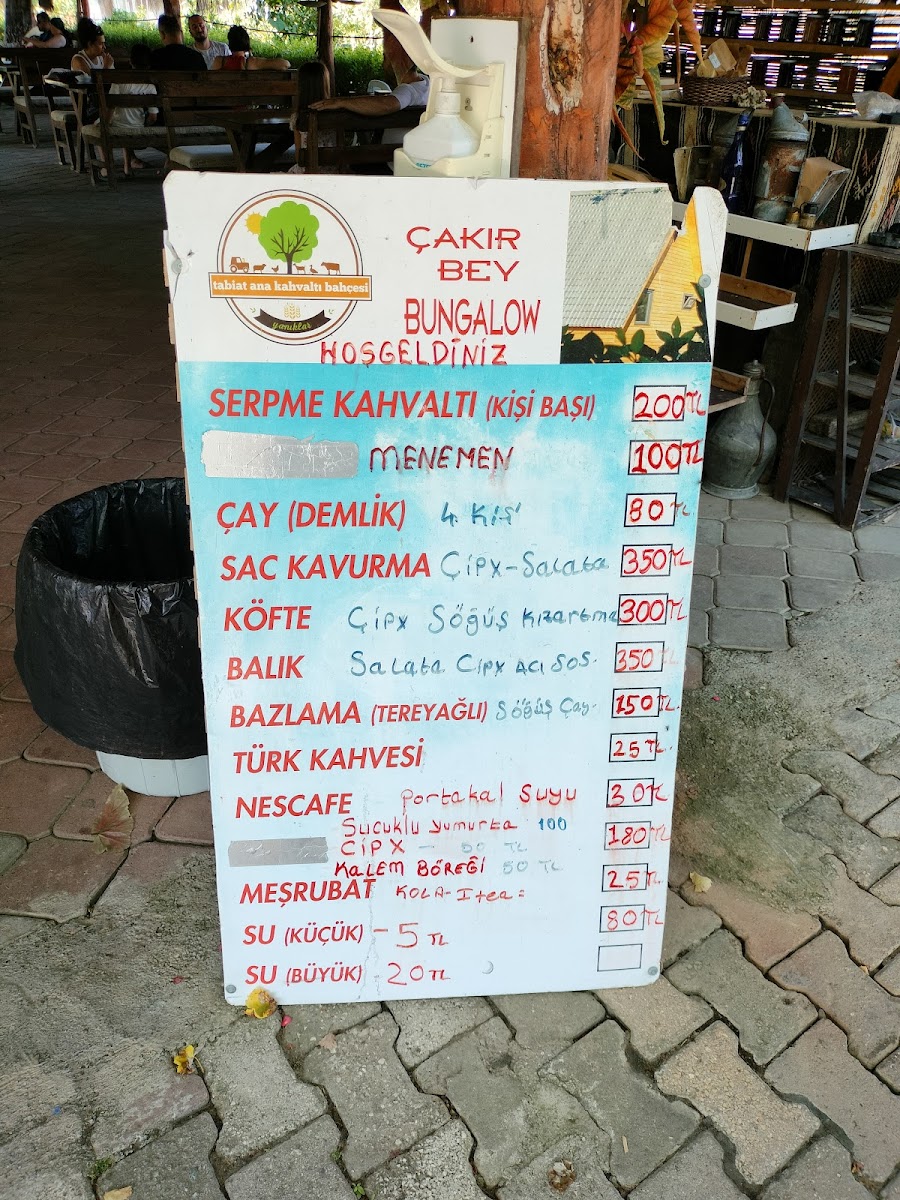 tabiat ana kahvaltı bahçesi
yanıklar
ÇAKIR
BEY
BUNGALOW
HOŞGELDİNİZ
SERPME KAHVALTI (KİŞİ BAŞI) 200 TL
MENEMEN 100 TL
ÇAY (DEMLİK) 4 Kiş' 80 TL
SAC KAVURMA Çipx-Salata 350 TL
KÖFTE Çipx Söğüş Kızartma 300 TL
BALIK Salata Cipx Acı Sos. 350 TL
BAZLAMA (TEREYAĞLI) Söğüş Çay. 150 TL.
TÜRK KAHVESİ 25 TL.
NESCAFE Portakal Suyu 30 TL
Sucuklu yumurta 100 180 TL
CİPX - 50 TL
KALEM BÖREĞİ 50 TL
MEŞRUBAT KOLA-Itea: 25 TL.
SU (KÜÇÜK) - 5 TL 80 TL
SU (BÜYÜK) - 20 TL